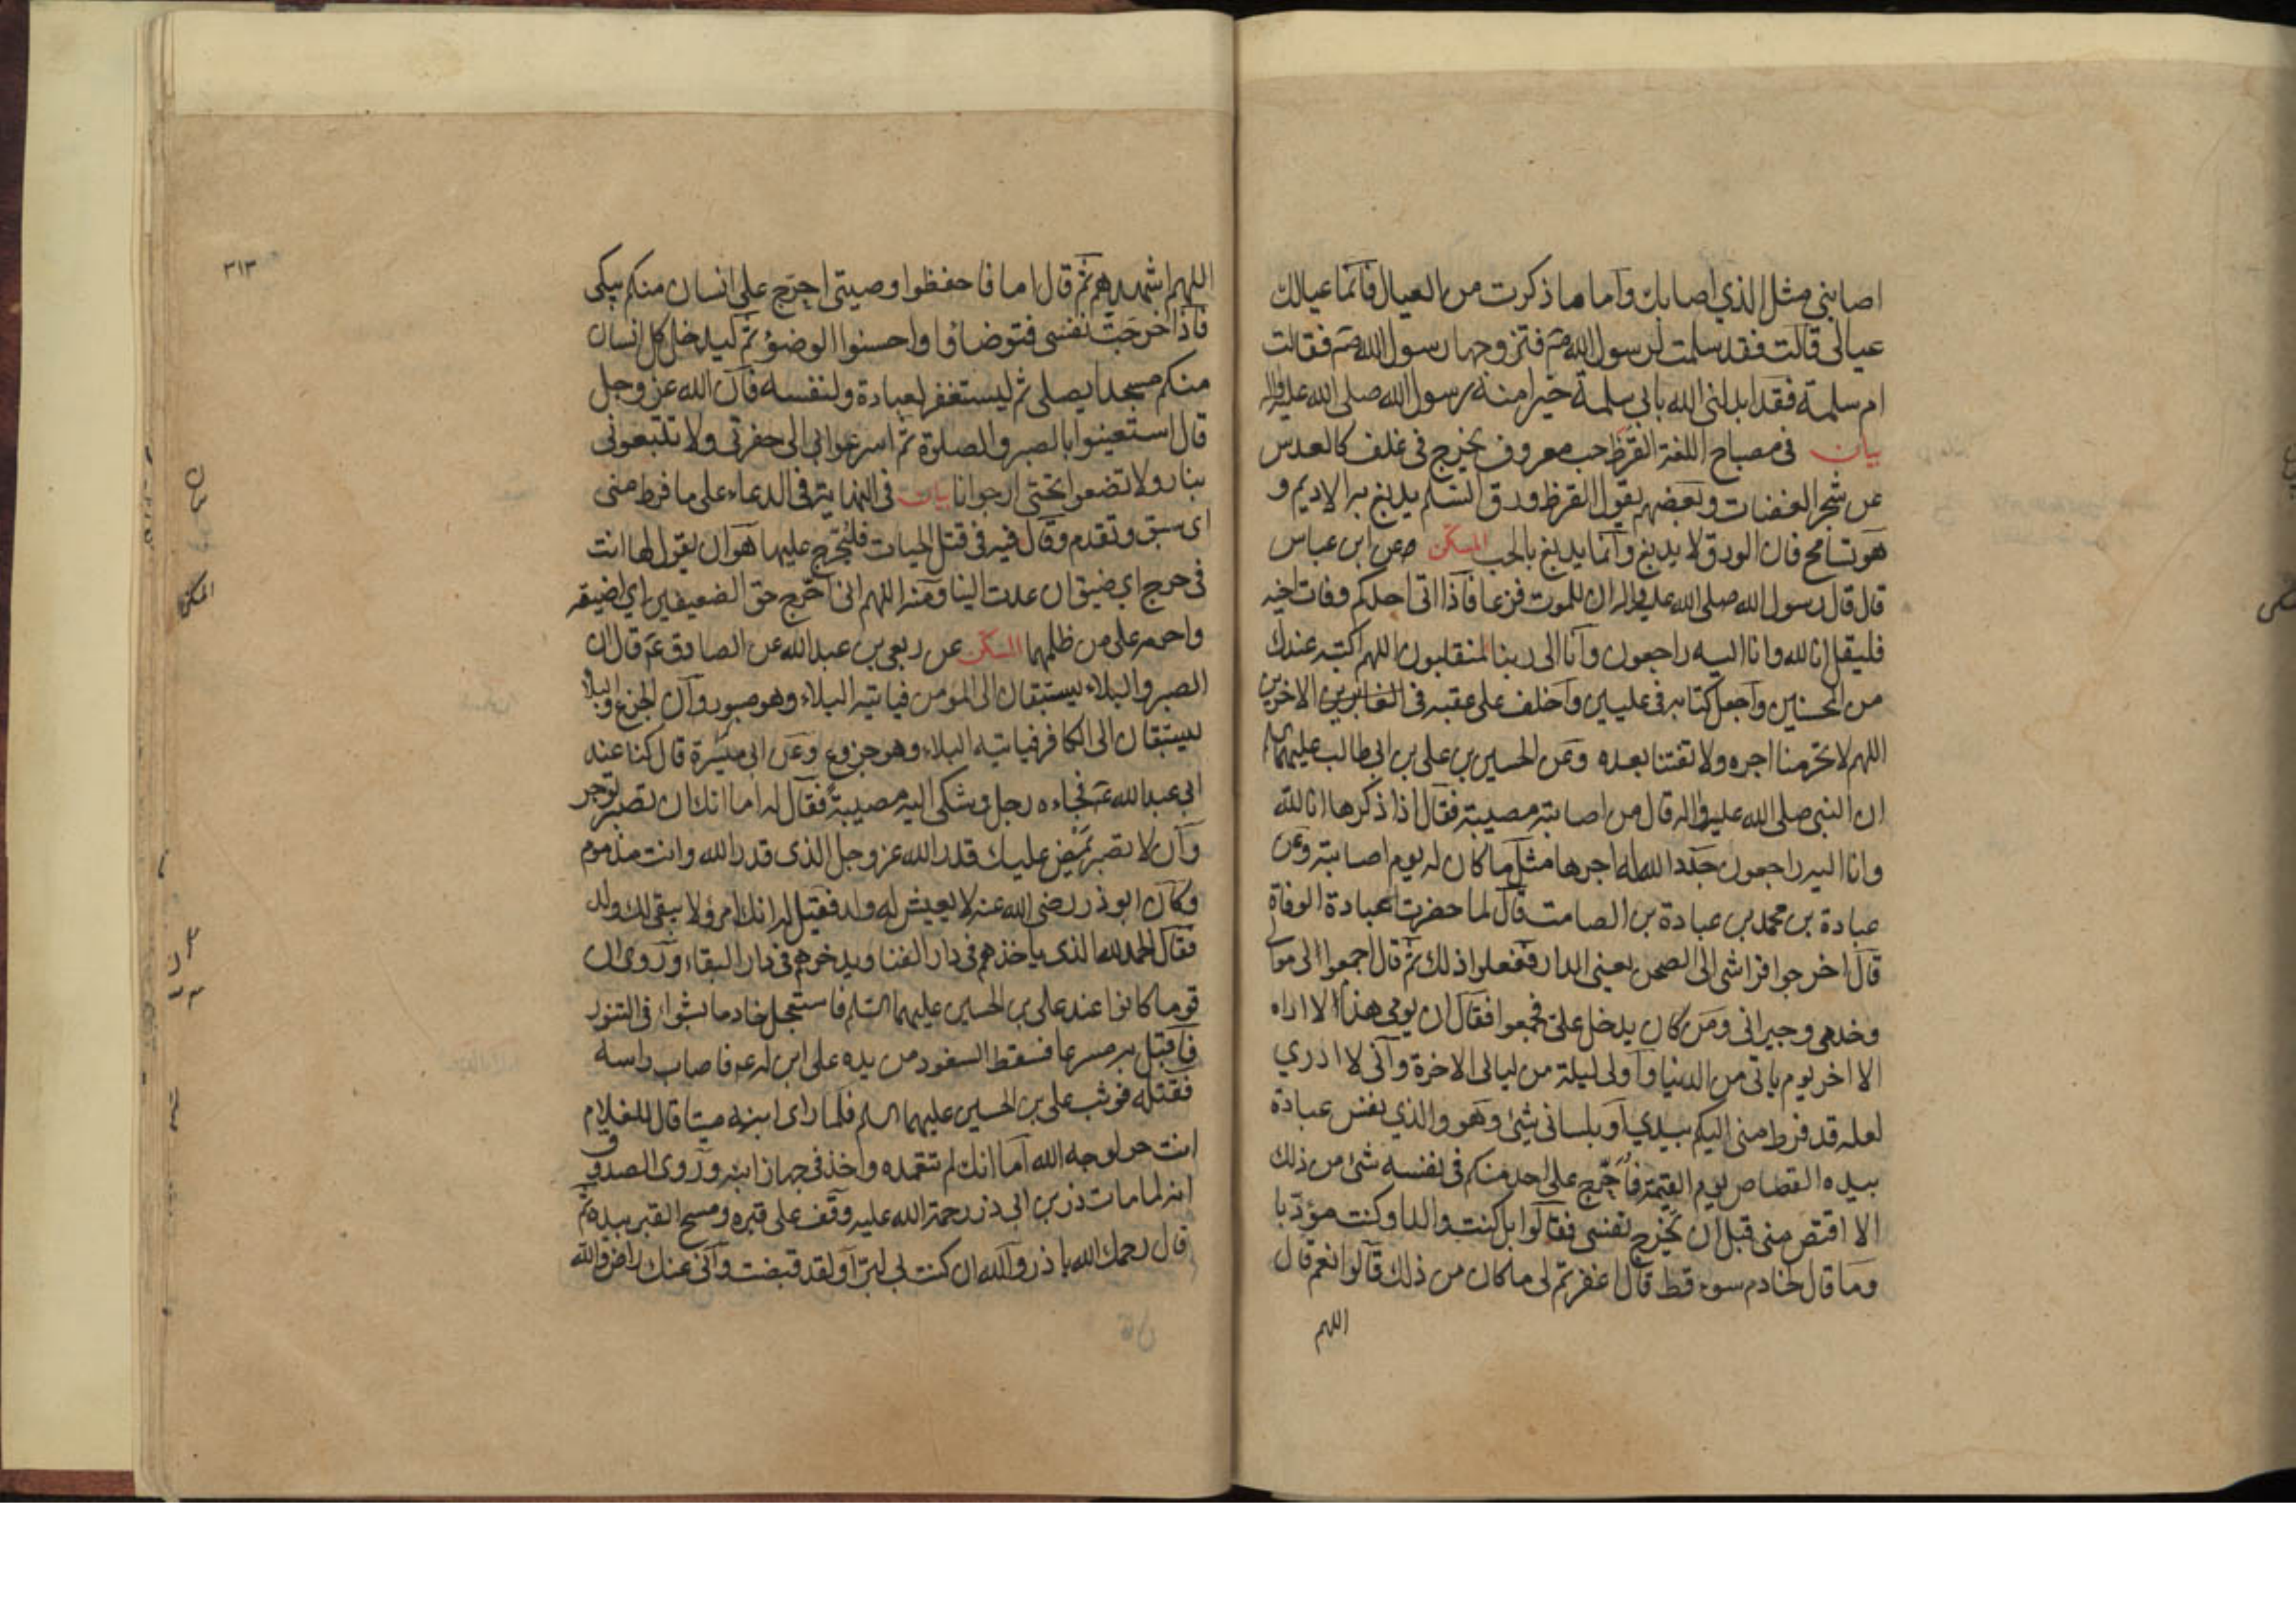 اصابنى مثل الذي اصابك وأما ما ذكرت من العيال فأنما عيالك
عيالى قالت فقد سلمت لرسول الله ص فتزوجها رسول الله ص فقالت
ام سلمة فقد ابدلنى الله بابي سلمة خيرا منه رسول الله صلى الله عليه واله
بيان فى مصباح اللغة القرظ حب معروف يخرج فى غلف كالعدس
من شجر العضات وبعضهم يقول القرظ ورق السلم يدبغ به الاديم و
هو تسامح فان الورق لا يدبغ وانما يدبغ بالحب المسكن وعن ابن عباس
قال قال رسول الله صلى الله عليه واله ان للموت فزعا فأذا اتى احدكم وفات اخيه
فليقل انا لله وانا اليه راجعون وانا الى ربنا لمنقلبون اللهم اكتبه عندك
من المحسنين واجعل كتابه فى عليين واخلف على عقبه فى الغابرين الاخرين
اللهم لا تحرمنا اجره ولا تفتنا بعده وعن الحسين بن على بن ابى طالب عليهما
ان النبي صلى الله عليه واله قال من اصابته مصيبة فقال اذا ذكرها انا لله
وانا اليه راجعون جدد الله له اجرها مثل ما كان له يوم اصابته وعن
عبادة بن محمد بن عبادة بن الصامت قال لما حضرت عبادة الوفاة
قال اخرجوا فراشى الى الصحن يعنى الدار ففعلوا ذلك ثم قال اجمعوا الى موالى
وخدمى وجيرانى ومن كان يدخل على فجمعوا فقال ان يومى هذا لا اراه
الا اخر يوم ياتى من الدنيا واولى ليلة من ليالى الاخرة وانى لا ادري
لعله قد فرط منى اليكم بيدي او بلسانى شئ وهو والذي نفس عبادة
بيده القصاص يوم القيمة فأحرج على احد منكم فى نفسه شئ من ذلك
الا اقتص منى قبل ان تخرج نفسى فقالوا بل كنت والدا وكنت مؤدبا
وما قال لخادم سوء قط قال اغفرتم لى ما كان من ذلك قالوا نعم قال
اللهم
٣١٣
اللهم اشهد ثم قال اما فاحفظوا وصيتى احرج على انسان منكم يبكى
فأذا خرجت نفسى فتوضاؤا واحسنوا الوضؤ ثم ليدخل كل انسان
منكم مسجدا يصلى ثم ليستغفر لعبادة ولنفسه فان الله عز وجل
قال استعينوا بالصبر والصلوة ثم اسرعوا بى الى حفرتى ولا تتبعونى
بنار ولا تضعوا تحتى ارجوانا بيان فى النهاية فى الدعاء على ما فرط منى
اى سبق وتقدم وقال فيه فى قتل الحيات فليحرج عليها هو ان يقول لها انت
فى حرج اي ضيق ان عدت الينا ومنه اللهم انى احرج حق الضعيفين اي اضيقه
واحرمه على من ظلمهما المسكن عن ربعى بن عبد الله عن الصادق ع قال ان
الصبر والبلاء يستبقان الى المؤمن فياتيه البلاء وهو صبور وان الجزع والبلاء
ليستبقان الى الكافر فياتيه البلاء وهو جزوع وعن ابى ميسرة قال كنا عند
ابى عبد الله ع فجاءه رجل وشكى اليه مصيبة فقال له اما انك ان تصبر توجر
وان لا تصبر يمض عليك قدر الله عز وجل الذى قدر الله وانت مذموم
وكان ابوذر رضى الله عنه لا يعيش له ولد فقيل له انك امرؤ لا يبقى لك ولد
فقال الحمد لله الذى ياخذهم فى دار الفنا ويدخرهم فى دار البقاء وروى ان
قوما كانوا عند على بن الحسين عليهما السلم فاستعجل خادما بشواء فى التنور
فاقبل به مسرعا فسقط السفود من يده على ابن له ع فاصاب راسه
فقتله فوثب على بن الحسين عليهما السلم فلما راى ابنه ميتا قال للغلام
انت حر لوجه الله اما انك لم تتعمده واخذ فى جهاز ابنه وروى الصدوق
انه لما مات ذر بن ابى ذر رحمة الله عليه وقف على قبره ومسح القبر بيده ثم
قال رحمك الله يا ذر والله ان كنت بى لبرا ولقد قبضت وانى عنك راض والله